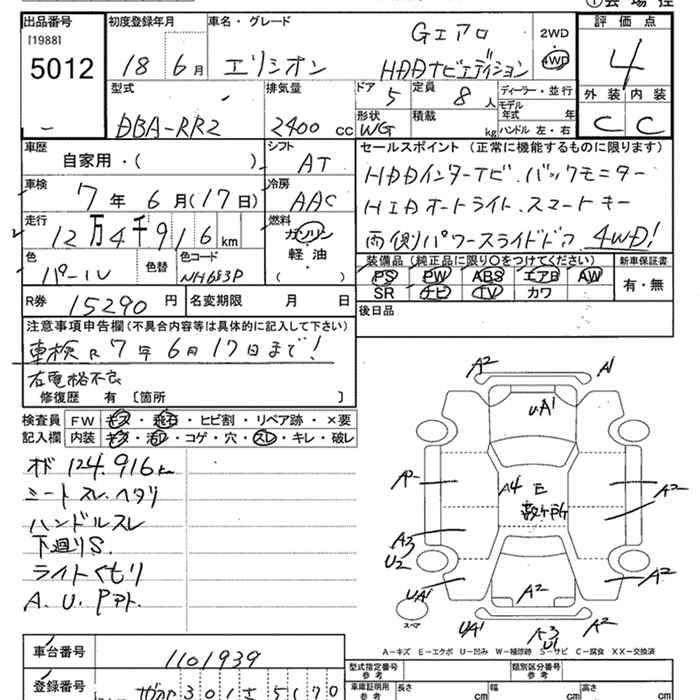 出品番号 初度登録年月 車名・グレード 評価点
[1988] Gエアロ 2WD
5012 18 6月 エリシオン HDDナビエディション 4WD 4
型式 排気量 ドア 定員 ディーラー・並行 外装 内装
DBA-RR2 2400cc 5 8人 モデル年式 年 C C
形状 積載 ハンドル 左・右
WG kg
車歴 自家用・( ) シフト AT セールスポイント (正常に機能するものに限ります)
車検 7年6月(17日) 冷房 AAC HDDインターナビ、バックモニター
走行 12万4千916km 燃料 ガソリン HIDオートライト、スマートキー
軽・油 両側パワースライドドア 4WD!
( )
色 パール 色替 色コード NH683P
装備品 (純正品に限り○をつけてください) 新車保証書
PS PW ABS エアB AW 有・無
SR ナビ TV カワ
R券 15290円 名変期限 月 日 後日品
注意事項申告欄 (不具合内容等は具体的に記入して下さい)
車検R7年6月17日まで!
右電格不良
修復歴 有 [箇所 ]
検査員記入欄 FW キズ・飛石・ヒビ割・リペア跡・×要
内装 キズ・汚レ・コゲ・穴・スレ・キレ・破レ
オド 124,916km
シートスレ、ヘタリ
ハンドルスレ
下廻りS.
ライトくもり
A.U.Pアト.
A2 A1
UA1
A2
A4 E
数ヶ所
A2
A3
U2
UA1
A2
A2
UA1
A3
U1
A2
スペア
A-キズ E-エクボ U-凹み W-補修跡 S-サビ C-腐食 XX-交換済
車台番号 1101939
型式指定番号 参考 類別区分番号 参考
登録番号 301 5170
車庫証明用 参考 長さ cm 幅 cm 高さ cm